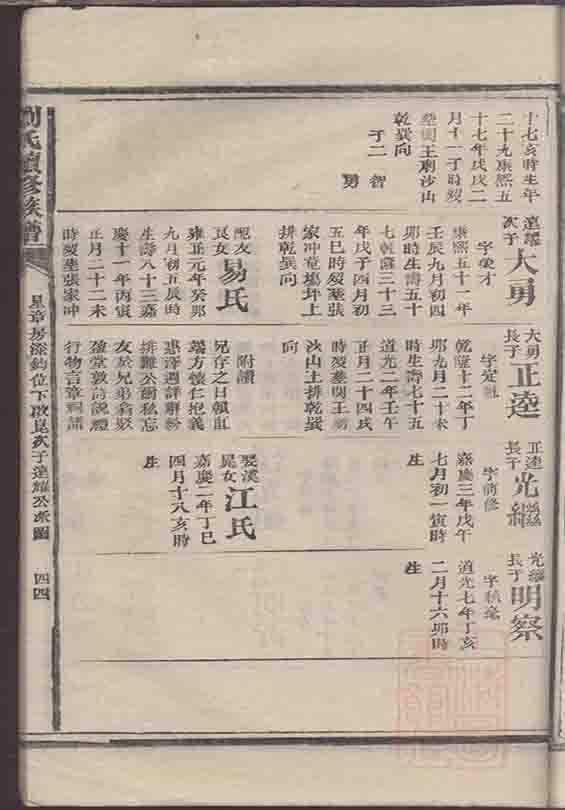 十七亥時生年
二十九康熙五
十七年戊戌二
月十一丁時歿
塟闕王廟沙山
乾巽向
子二
智
勇
達耀
次子
大勇
字榮才
康熙五十一年
壬辰九月初四
卯時生壽五十
七乾隆三十三
年戊子四月初
五巳時歿塟張
家冲竜塲坪上
排乾巽向
配友
良女
易氏
雍正元年癸卯
九月初五辰時
生壽八十三嘉
慶十一年丙寅
正月二十二未
時歿塟張家冲
大勇
長子
正逵
字定
乾隆十二年丁
卯九月二十未
時生壽七十五
道光二年壬午
正月二十四戌
時歿塟闕王廟
沙山土排乾巽
向
附讚
兄存之日
端方懷仁抱義
惠澤週詳解紛
排難公爾私忘
友於兄弟翕奴
盈堂敦詩說禮
行物言章
正逵
長子
光繼
字前修
嘉慶三年戊午
七月初一寅時
生
娶漢
晁女
江氏
嘉慶二年丁巳
四月十八亥時
生
光繼
長子
明察
字秋毫
道光七年丁亥
二月十六卯時
生
劉氏續修族譜
星章房深鈞位下啟昆次子達耀公派圖
四四